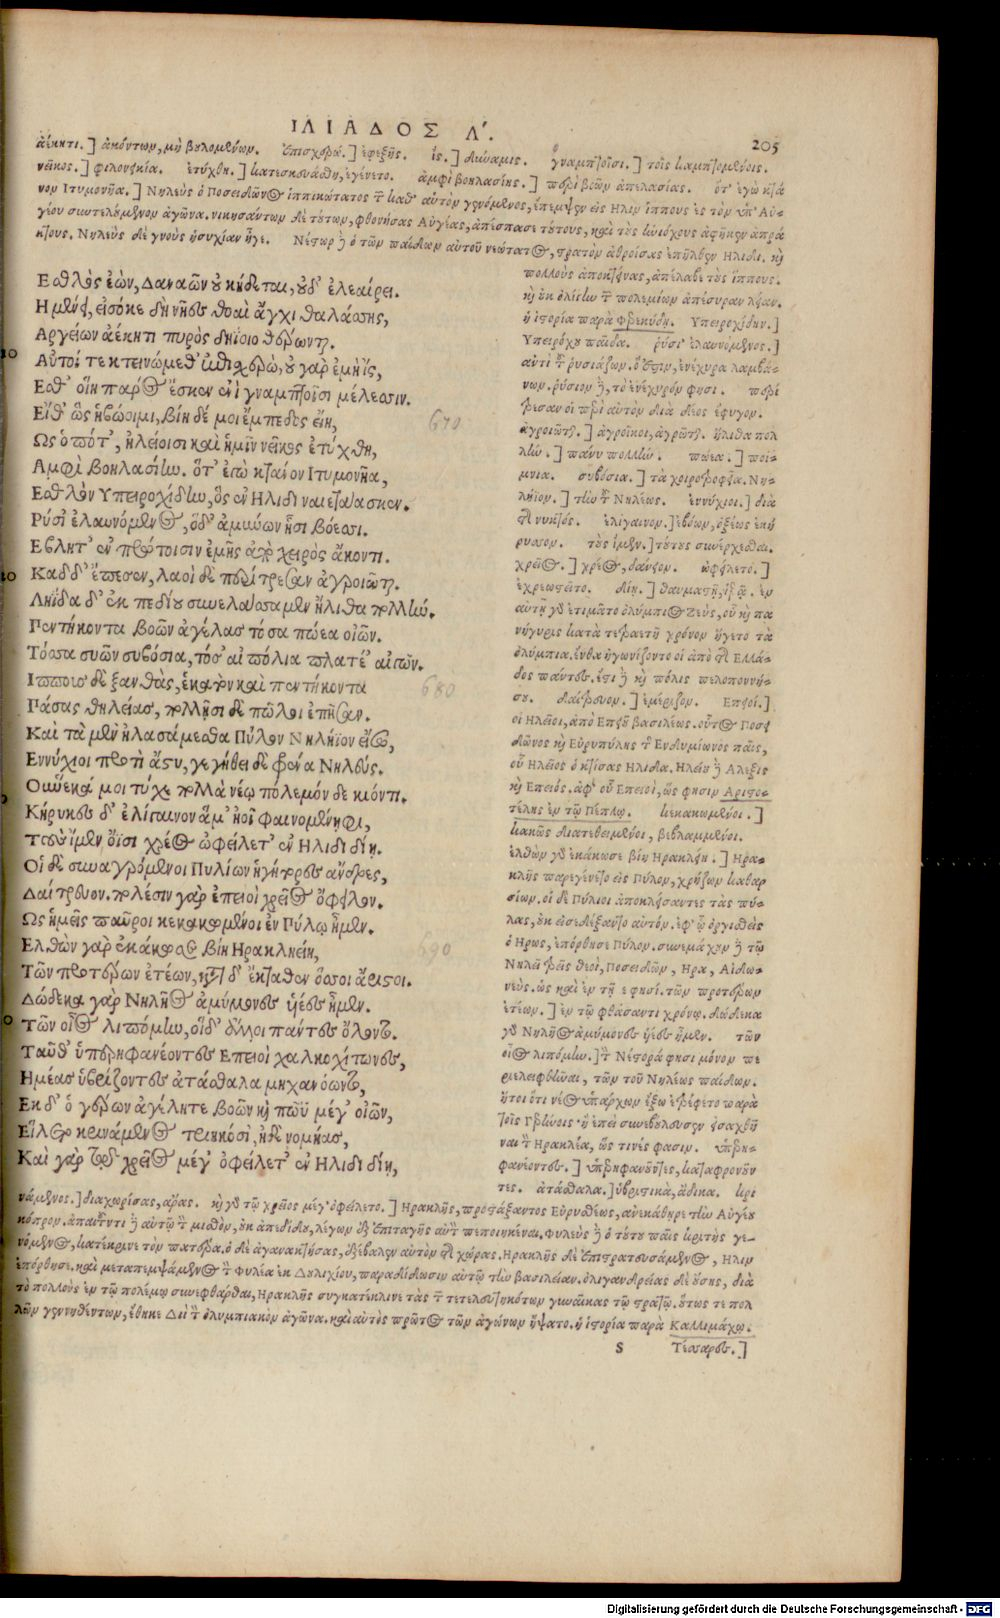 ΙΛΙΑΔΟΣ Λ΄.
205
ἀέκητι.] ἀκόντων, μὴ βουλομένων. ἐπισχερώ.] ἐφεξῆς. ἲς.] δύναμις. γναμπτοῖσι.] τοῖς καμπτομένοις.
νεῖκος.] φιλονεικία. ἐτύχθη.] κατεσκευάσθη, ἐγένετο. ἀμφὶ βοηλασίης.] περὶ βοῶν ἀπελασίας. ὅτ' ἐγὼ κτά
νον Ἰτυμονῆα.] Νηλεὺς ὁ Ποσειδῶνος ἱππικώτατος τῶν καθ' αὑτὸν γενόμενος, ἔπεμψεν εἰς Ἦλιν ἵππους ἐς τὸν ὑπ' Αὐ-
γέου συντελούμενον ἀγῶνα. νικησάντων δὲ τούτων, φθονήσας Αὐγέας, ἀπέσπασε τούτους, καὶ τοὺς ἡνιόχους ἀφῆκεν ἀπρά
κτους. Νηλεὺς δὲ γνοὺς ἡσυχίαν ἦγε. Νέστωρ δὲ ὁ τῶν παίδων αὐτοῦ νεώτατος, στρατὸν ἀθροίσας ἐπῆλθεν Ἤλιδι. καὶ
Ἐσθλὸς ἐὼν, Δαναῶν οὐ κήδεται, οὐδ' ἐλεαίρει.
Ἢ μένει, εἰσόκε δὴ νῆες θοαὶ ἄγχι θαλάσσης,
Ἀργείων ἀέκητι πυρὸς δηΐοιο θέρωνται.
10
Αὐτοί τε κτεινώμεθ' ἐπισχερὼ, οὐ γὰρ ἐμὴ ἲς,
Ἔσθ' οἵη πάρος ἔσκεν ἐνὶ γναμπτοῖσι μέλεσσιν.
Εἴθ' ὣς ἡβώοιμι, βίη δέ μοι ἔμπεδος εἴη,
670
Ὡς ὁπότ', Ἠλείοισι καὶ ἡμῖν νεῖκος ἐτύχθη,
Ἀμφὶ βοηλασίην. ὅτ' ἐγὼ κτάνον Ἰτυμονῆα,
Ἐσθλὸν Ὑπειροχίδην, ὃς ἐν Ἤλιδι ναιετάασκεν.
Ῥύσι' ἐλαυνόμενος, ὁ δ' ἀμύνων ᾗσι βόεσσι.
Ἔβλητ' ἐν πρώτοισιν ἐμῆς ἀπὸ χειρὸς ἄκοντι.
10
Καδδ' ἔπεσεν, λαοὶ δὲ περίτρεσαν ἀγροιῶται.
Ληΐδα δ' ἐκ πεδίου συνελάσσαμεν ἤλιθα πολλήν.
Πεντήκοντα βοῶν ἀγέλας τόσα πώεα οἰῶν.
Τόσσα συῶν συβόσια, τόσ' αἰπόλια πλατέ' αἰγῶν.
Ἵππους δὲ ξανθὰς, ἑκατὸν καὶ πεντήκοντα
680
Πάσας θηλείας, πολλῇσι δὲ πῶλοι ἐπῆσαν.
Καὶ τὰ μὲν ἠλασάμεσθα Πύλον Νηλήϊον εἴσω,
Ἐννύχιοι προτὶ ἄστυ, γεγήθει δὲ φρένα Νηλεύς.
Οὕνεκά μοι τύχε πολλὰ νέῳ πόλεμόν δε κιόντι.
Κήρυκες δ' ἐλίγαινον ἅμ' ἠοῖ φαινομένηφι,
Τοὺς ἴμεν οἷσι χρέος ὠφείλετ' ἐν Ἤλιδι δίῃ.
Οἱ δὲ συναγρόμενοι Πυλίων ἡγήτορες ἄνδρες,
Δαίτρευον. πολέσιν γὰρ ἐπειοὶ χρεῖος ὄφειλον.
Ὡς ἡμεῖς παῦροι κεκακωμένοι ἐν Πύλῳ ἦμεν.
690
Ἐλθὼν γὰρ ἐκάκωσε βίη Ἡρακληείη,
Τῶν προτέρων ἐτέων, κατὰ δ' ἔκταθεν ὅσσοι ἄριστοι.
Δώδεκα γὰρ Νηλῆος ἀμύμονες υἱέες ἦμεν.
Τῶν οἶος λιπόμην, οἱ δ' ἄλλοι πάντες ὄλοντο.
Ταῦθ' ὑπερηφανέοντες Ἐπειοὶ χαλκοχίτωνες,
Ἡμέας ὑβρίζοντες ἀτάσθαλα μηχανόωντο,
Ἐκ δ' ὁ γέρων ἀγέλην τε βοῶν καὶ πῶϋ μέγ' οἰῶν,
Εἵλετο κρινάμενος τριηκόσι', ἠδὲ νομῆας,
Καὶ γὰρ τῷ χρεῖος μέγ' ὀφείλετ' ἐν Ἤλιδι δίῃ,
πολλοὺς ἀποκτείνας, ἀπέλαβε τοὺς ἵππους.
καὶ οὐκ ὀλίγην τῶν πολεμίων ἀπέσυραν λείαν.
ἡ ἱστορία παρὰ Φερεκύδῃ. Ὑπειροχίδην.]
Ὑπειρόχου παῖδα. ῥύσι' ἐλαυνόμενος.]
ἀντὶ τοῦ ῥυσιάζων. ὅ ἐστιν, ἐνέχυρα λαμβά-
νων. ῥύσιον δὲ, τὸ ἐνέχυρόν φησι. περί
τρεσαν οἱ περὶ αὐτὸν διὰ δέος ἔφυγον.
ἀγροιῶται.] ἀγροῖκοι, ἀγρῶται. ἤλιθα πολ
λήν.] πάνυ πολλήν. πώεα.] ποί-
μνια. συβόσια.] τὰ χοιροτροφεῖα. Νη-
λήϊον.] τὴν τοῦ Νηλέως. ἐννύχιοι.] διὰ
τῆς νυκτός. ἐλίγαινον.] ἐβόων, ὀξέως ἐκή
ρυσσον. τοὺς ἴμεν.] τούτους συνέρχεσθαι.
χρεῖος.] χρέος, δάνειον. ὠφείλετο.]
ἐχρεωστεῖτο. δίῃ.] θαυμαστῇ, ἱερᾷ. ἐν
αὐτῇ γὰρ ἐτιμᾶτο ὀλύμπιος Ζεὺς, οὗ καὶ πα
νήγυρις κατὰ τετραετῆ χρόνον ἤγετο τὰ
ὀλύμπια. ἔνθα ἠγωνίζοντο οἱ ἀπὸ τῆς Ἑλλά-
δος πάντες. ἔστι δὲ καὶ πόλις πελοποννή-
σου. δαίτρευον.] ἐμέριζον. Ἐπειοί.]
οἱ Ἠλεῖοι, ἀπὸ Ἐπειοῦ βασιλέως. οὗτος Ποσει
δῶνος καὶ Εὐρυπύλης τῆς Ἐνδυμίωνος παῖς,
οὗ Ἠλεῖος ὁ κτίσας Ἤλιδα. Ἠλείου δὲ Ἄλεξις
καὶ Ἐπειός. ἀφ' οὗ Ἐπειοὶ, ὥς φησιν Ἀριστο-
τέλης ἐν τῷ Πέπλῳ. κεκακωμένοι.]
κακῶς διατεθειμένοι, βεβλαμμένοι.
ἐλθὼν γὰρ ἐκάκωσε βίη Ἡρακλείη.] Ἡρα-
κλῆς παρεγένετο εἰς Πύλον, χρῄζων καθαρ
σίων. οἱ δὲ Πύλιοι ἀποκλείσαντες τὰς πύ-
λας, οὐκ εἰσεδέξαντο αὐτόν. ἐφ' ᾧ ὀργισθεὶς
ὁ ἥρως, ἐπόρθησε Πύλον. συνεμάχουν δὲ τῷ
Νηλεῖ τρεῖς θεοὶ, Ποσειδῶν, Ἥρα, Ἀϊδω-
νεύς. ὡς καὶ ἐν τῇ ε φησί. τῶν προτέρων
ἐτέων.] ἐν τῷ φθάσαντι χρόνῳ. δώδεκα
γὰρ Νηλῆος ἀμύμονες υἱέες ἦμεν. τῶν
οἶος λιπόμην.] τὸν Νέστορά φησι μόνον πε
ριλειφθῆναι, τῶν τοῦ Νηλέως παίδων.
ἤτοι ὅτι νέος ὑπάρχων ἔξω ἐτρέφετο παρὰ
τοῖς Γερηνίοις. ἢ ἐπεὶ συνεβούλευσεν εἰσαχθῆ
ναι τὸν Ἡρακλέα, ὥς τινές φασιν. ὑπερη-
φανέοντες.] ὑπερηφανοῦντες, καταφρονοῦν
τες. ἀτάσθαλα.] ὑβριστικὰ, ἄδικα. κρι
νάμενος.] διαχωρίσας, ἄρας. καὶ γὰρ τῷ χρεῖος μέγ' ὀφείλετο.] Ἡρακλῆς, προστάξαντος Εὐρυσθέως, ἀνεκάθηρε τὴν Αὐγέου
κόπρον. ἀπαιτοῦντι δὲ αὐτῷ τὸν μισθὸν, οὐκ ἀπεδίδου, λέγων ἐξ ἐπιταγῆς αὐτὸν πεποιηκέναι. Φυλεὺς δὲ ὁ τούτου παῖς κριτὴς γε-
νόμενος, κατέκρινε τὸν πατέρα. ὁ δὲ ἀγανακτήσας, ἐξέβαλεν αὐτὸν τῆς χώρας. Ἡρακλῆς δὲ ἐπιστρατευσάμενος, Ἦλιν
ἐπόρθησε. καὶ μεταπεμψάμενος τὸν Φυλέα ἐκ Δουλιχίου, παραδίδωσιν αὐτῷ τὴν βασιλείαν. ὀλιγανδρείας δὲ οὔσης, διὰ
τὸ πολλοὺς ἐν τῷ πολέμῳ συνεφθάρθαι, Ἡρακλῆς συγκατέκλινε τὰς τῶν τετελευτηκότων γυναῖκας τῷ στρατῷ. οὕτως τε πολ
λῶν γεννηθέντων, ἔθηκε Διῒ τὸν ὀλυμπιακὸν ἀγῶνα. καὶ αὐτὸς πρῶτος τῶν ἀγώνων ἥψατο. ἡ ἱστορία παρὰ Καλλιμάχῳ.
S Τέσσαρες.]
Digitalisierung gefördert durch die Deutsche Forschungsgemeinschaft - DFG